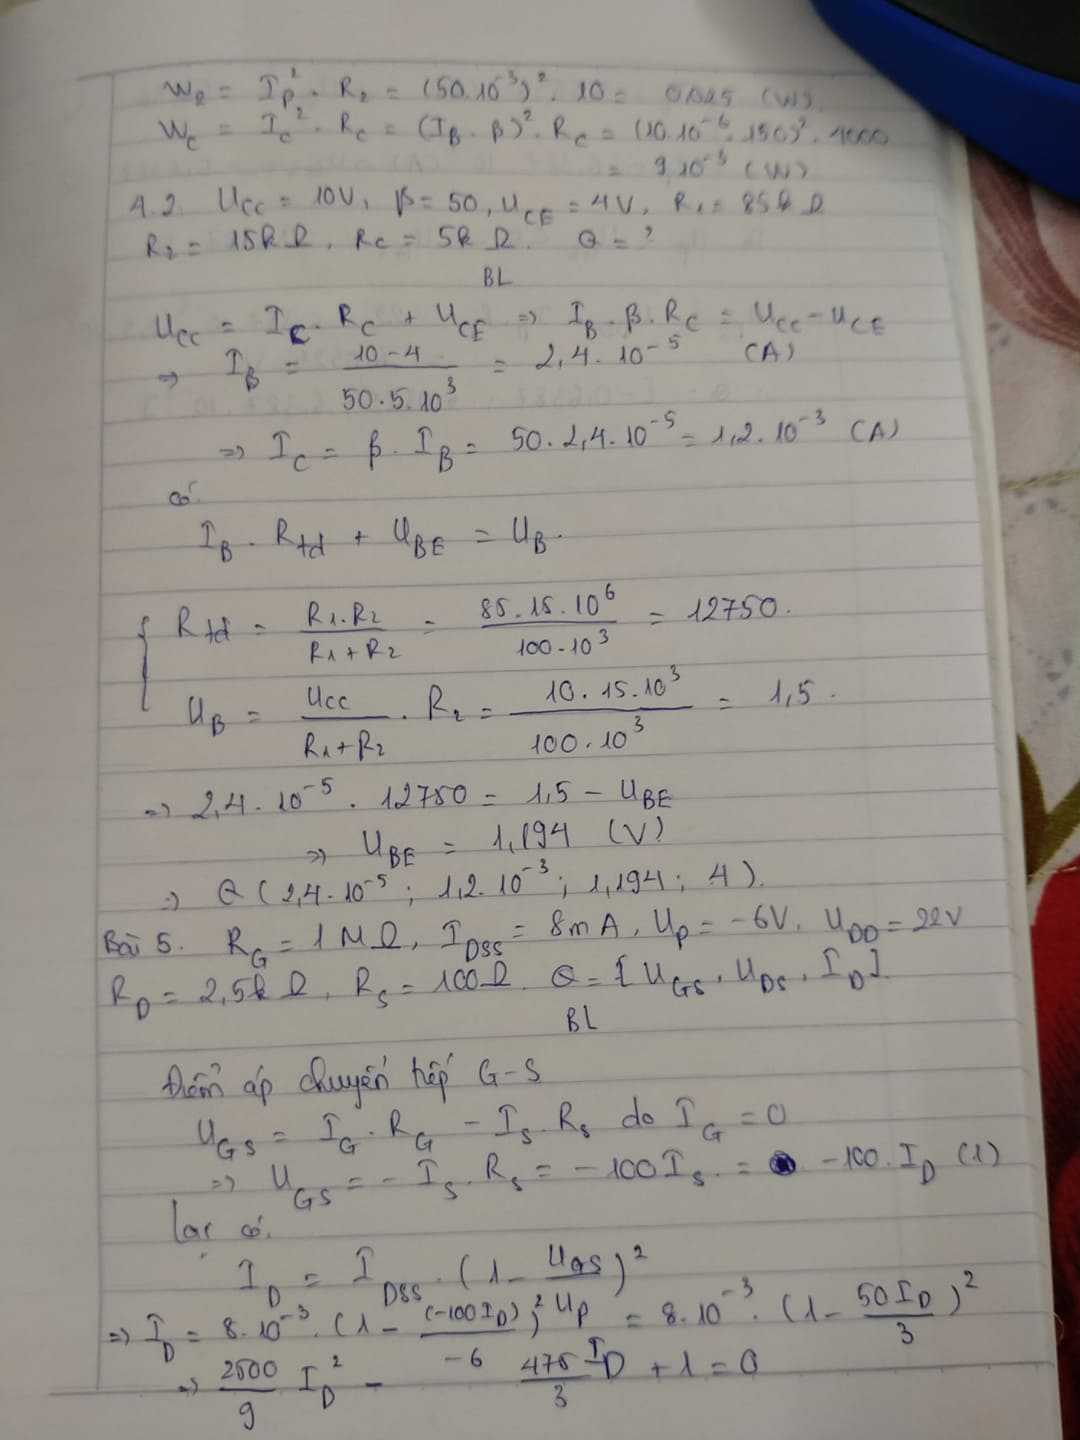 W₂ = I_p². R₂ = (50.10⁻³)². 10 = 0,025 (W).
W_C = I_C². R_C = (I_B. β)². R_C = (10.10⁻⁶. 150)². 4000
= 9.10⁻³ (W)
4.2. U_CC = 10V, β = 50, U_CE = 4V, R₁ = 85k Ω
R₂ = 15k Ω, R_C = 5k Ω. Q = ?
BL
U_CC = I_C. R_C + U_CE => I_B. β. R_C = U_CC - U_CE
=> I_B = (10-4)/(50.5.10³) = 2,4. 10⁻⁵ (A)
=> I_C = β. I_B = 50. 2,4. 10⁻⁵ = 1,2. 10⁻³ (A)
có.
I_B. R_tđ + U_BE = U_B.
{ R_tđ = (R₁.R₂)/(R₁+R₂) = (85.15.10⁶)/(100.10³) = 12750.
U_B = U_CC/(R₁+R₂) . R₂ = (10.15.10³)/(100.10³) = 1,5.
=> 2,4. 10⁻⁵. 12750 = 1,5 - U_BE
=> U_BE = 1,194 (V)
=> Q (2,4. 10⁻⁵; 1,2. 10⁻³; 1,194; 4).
Bài 5. R_G = 1 MΩ, I_DSS = 8mA, U_p = -6V, U_DD = 22V
R_D = 2,5k Ω, R_S = 100Ω. Q = { U_GS, U_DS, I_D }.
BL
Điểm áp chuyển tiếp G-S
U_GS = I_G. R_G - I_S. R_S do I_G = 0
=> U_GS = - I_S. R_S = -100I_S = -100. I_D (1)
Lại có.
I_D = I_DSS. (1 - U_GS/U_p)²
=> I_D = 8.10⁻³. (1 - (-100I_D)/-6)² = 8.10⁻³. (1 - 50I_D/3)²
=> 2500/9 I_D² - 475/3 I_D + 1 = 0